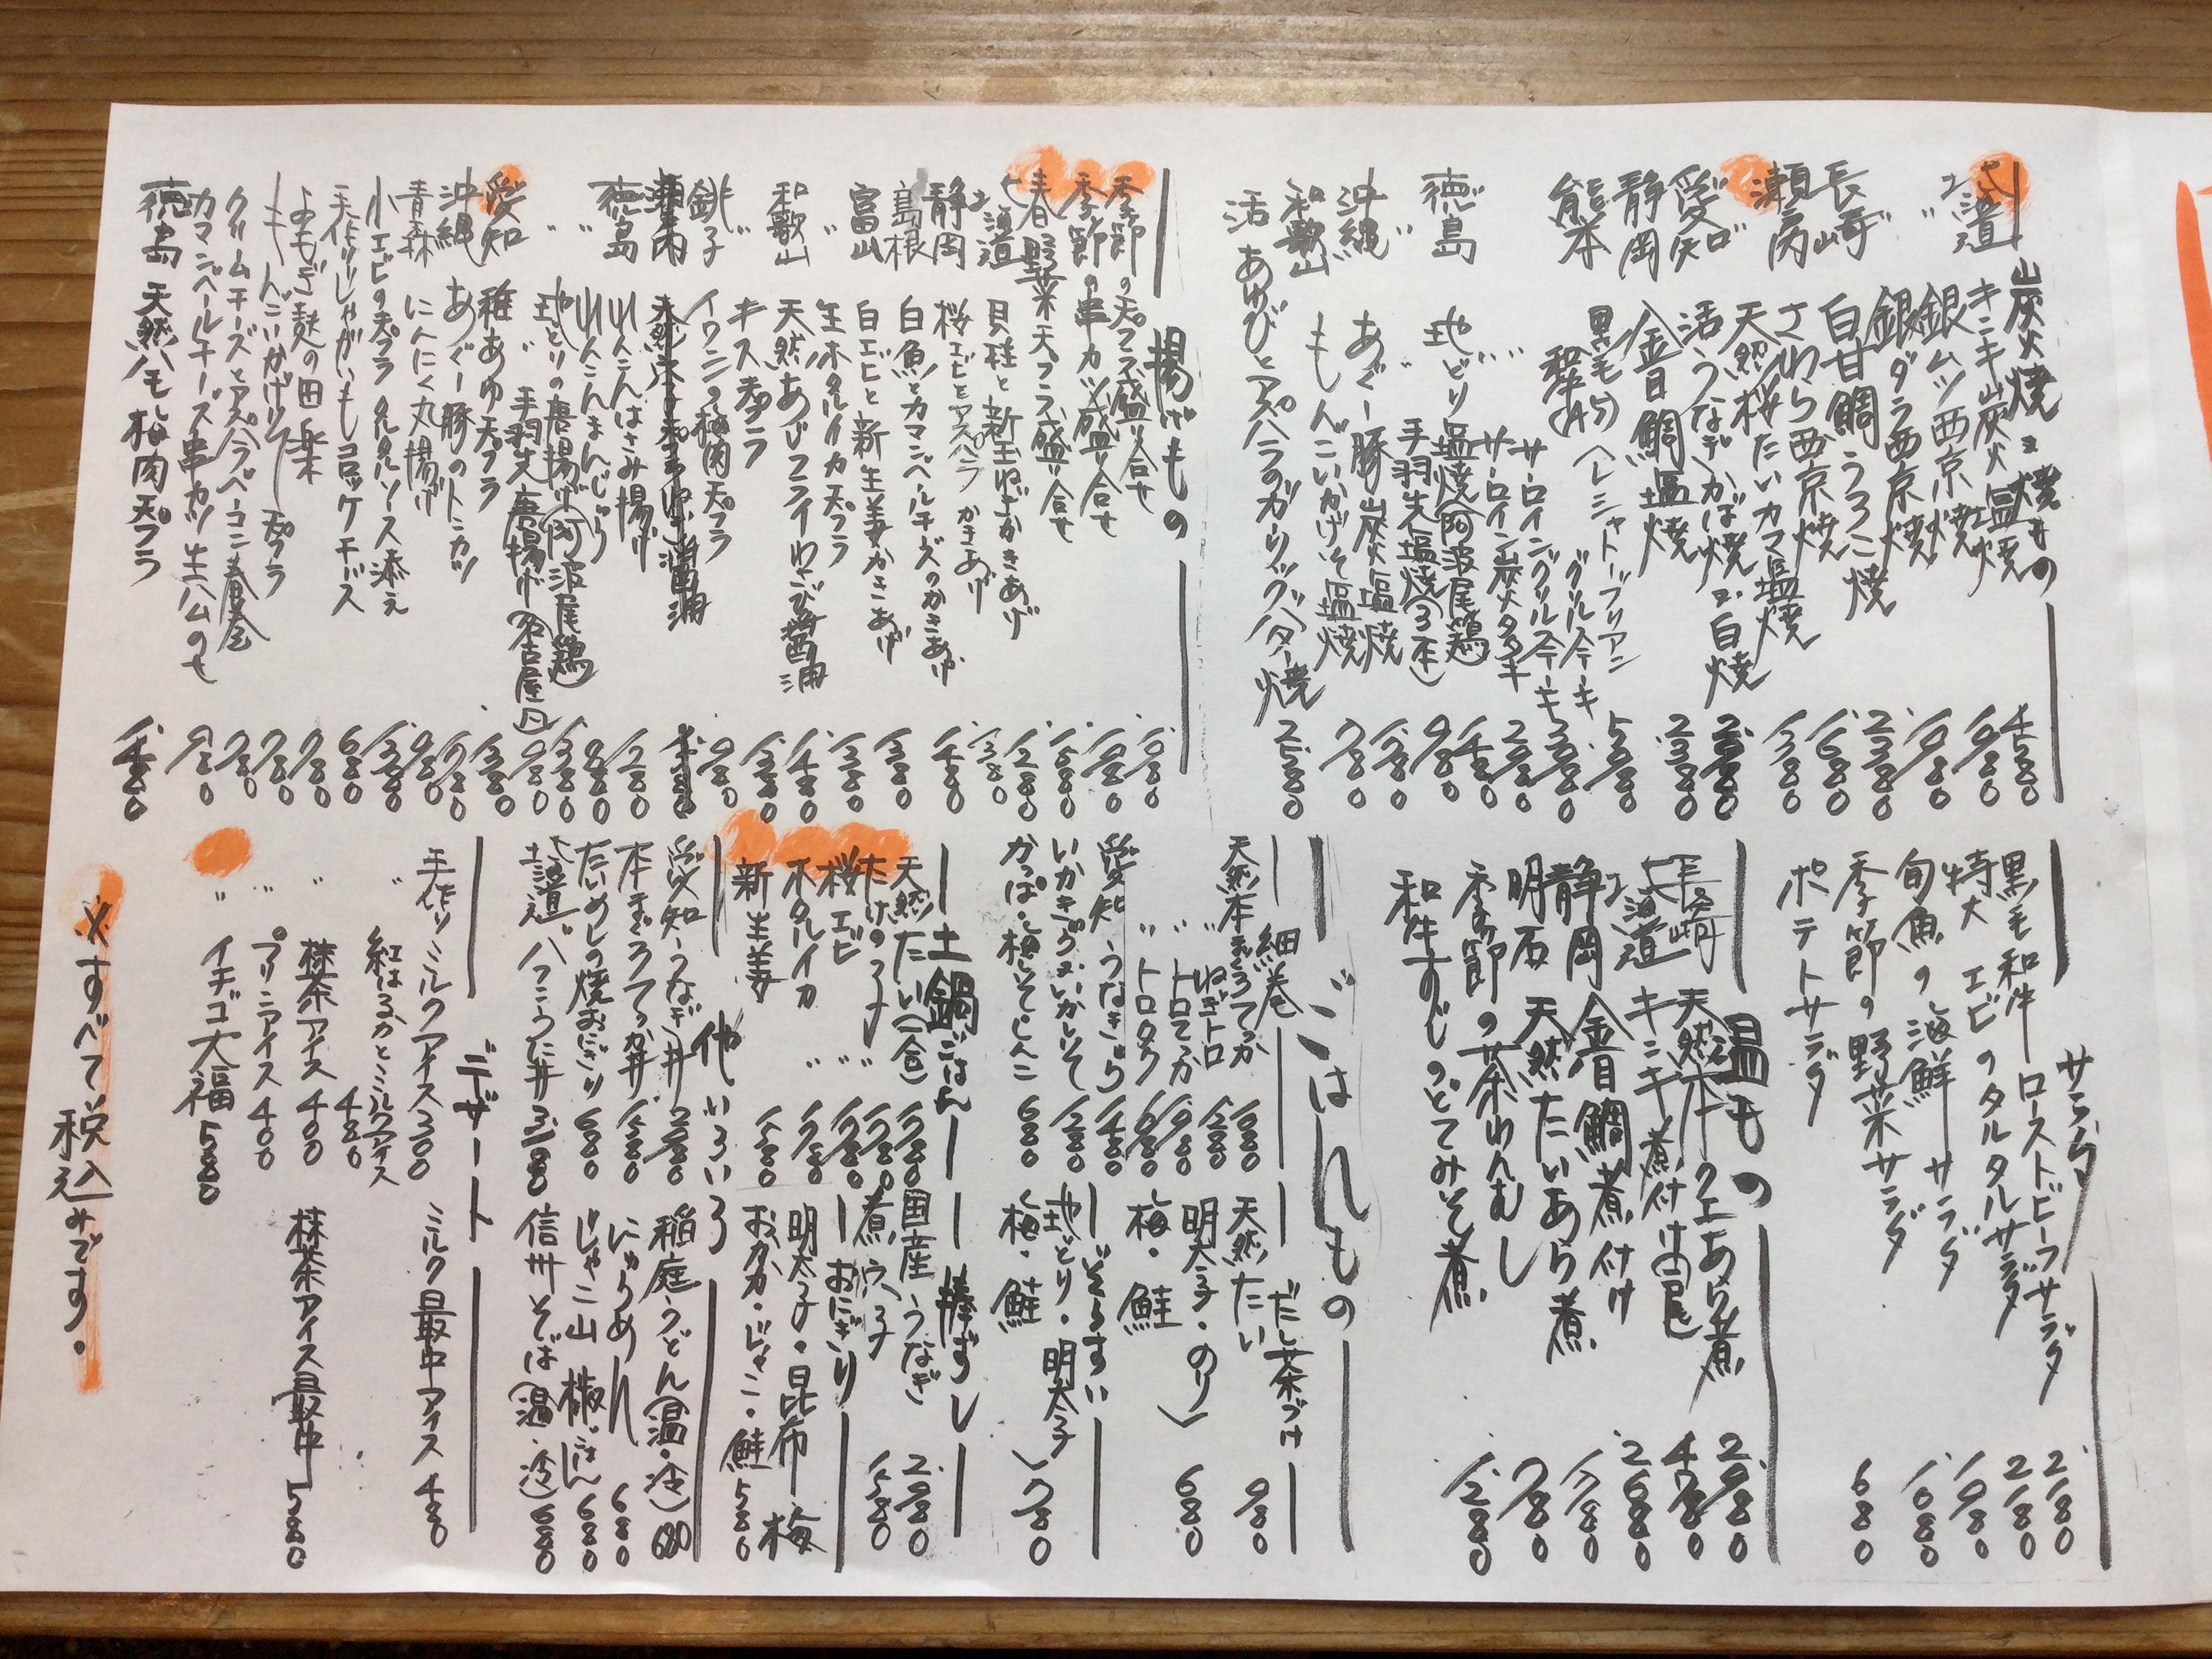 炭火焼・焼きもの
北海道 キンキ炭火塩焼 4580
〃 銀ムツ西京焼 1980
銀ダラ西京焼 1980
長崎 白甘鯛うろこ焼 2380
さわら西京焼 1680
瀬戸内 天然桜たいカマ塩焼 1380
愛知 活うなぎかば焼 or 白焼
静岡 金目鯛塩焼 2380
熊本 黒毛和牛(A5) ヘレシャトーブリアン
グリルステーキ
サーロイングリルステーキ
サーロイン炭火タタキ
徳島 地どり塩焼(阿波尾鶏)
手羽先塩焼(3本) 980
沖縄 あぐー豚炭火塩焼
和歌山 もんごいかげそ塩焼 780
活あわびとアスパラのガーリックバター焼 2580
揚げもの
季節の天プラ盛り合せ
季節の串カツ盛り合せ
春野菜天プラ盛り合せ
北海道 貝柱と新玉ねぎかきあげ 1280
静岡 桜エビとアスパラかきあげ 1380
島根 白魚とカマンベールチーズのかきあげ 1480
富山 白エビと新生姜かきあげ 1380
〃 生ホタルイカ天プラ
和歌山 天然あじフライわさび醤油
〃 キス天プラ
銚子 イワシの梅肉天プラ 980
徳島 れんこんはさみ揚げ 1280
〃 れんこんまんじゅう 880
〃 地どりの唐揚げ(阿波尾鶏) 1380
〃 手羽先唐揚げ(名古屋風) 980
愛知 稚あゆ天プラ 1380
沖縄 あぐー豚のトンカツ 1780
青森 にんにく丸揚げ 980
小エビの天プラ タルタルソース添え 1380
手作りじゃがいもコロッケチーズ 680
よもぎ麩の田楽 780
もんごいかげソー天プラ 780
クリームチーズとアスパラベーコン春巻 780
カマンベールチーズ串カツ生ハムのせ 980
徳島 天然ハモ梅肉天プラ 1480
サラダ
黒毛和牛ローストビーフサラダ 2180
特大エビのタルタルサラダ 2180
旬魚の海鮮サラダ 1980
季節の野菜サラダ 1080
ポテトサラダ 680
温もの
長崎 天然本クエあら煮 2980
北海道 キンキ煮付け(一尾) 4780
静岡 金目鯛煮付け 2680
明石 天然たいあら煮 1780
季節の茶わんむし 780
和牛すじのどてみそ煮 1280
ごはんもの
細巻
天然本まぐろてっか
〃 ねぎトロ 1280
〃 トロてっか 1980
〃 トロタク 1680
愛知 うなきゅう 1480
いかきゅう・いかしそ 1280
かっぱ・梅しそ・しんこ 680
だし茶づけ
天然たい 980
明太子・のり
梅・鮭 680
ぞうすい
地どり・明太子
梅・鮭 780
土鍋ごはん
天然たい(一合) 1780
たけの子 〃 1780
桜エビ 〃 1780
ホタルイカ 〃 1780
新生姜 1580
棒ずし
国産うなぎ 2980
煮穴子 1580
おにぎり
明太子・昆布・梅
おかか・じゃこ・鮭 580
他いろいろ
愛知うなぎ丼 2980
本まぐろてっか丼 1580
たいめしの焼おにぎり 680
北海道バフンうに丼
稲庭うどん(温・冷) 680
にゅうめん 680
じゃこ山椒ごはん 680
信州そば(温・冷) 680
デザート
手作りミルクアイス 300
〃 紅はるかとミルクアイス 480
〃 抹茶アイス 400
〃 プリンアイス 400
〃 イチゴ大福 580
ミルク最中アイス 480
抹茶アイス最中 580
※すべて税込み
税込みです。